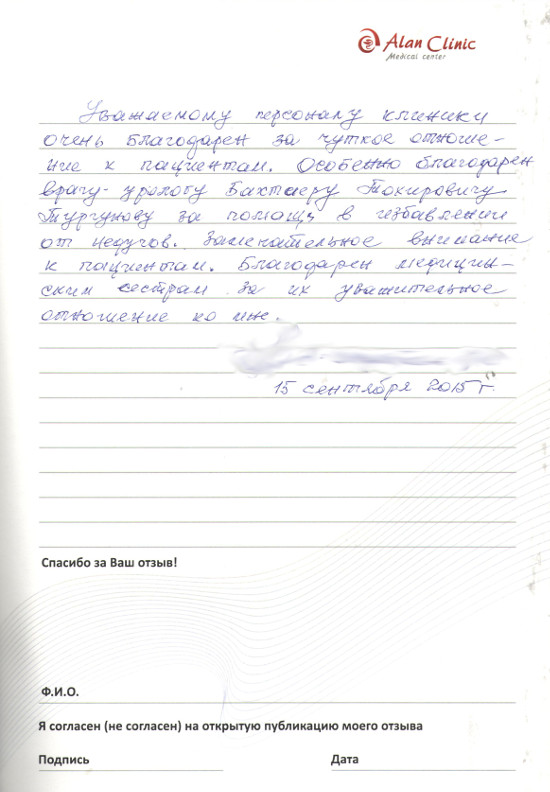 Alan Clinic
Medical center
Уважаемому персоналу клиники
очень благодарен за чуткое отноше-
ние к пациентам. Особенно благодарен
врачу-урологу Бахтиеру Тохировичу
Тургунову за помощь в избавлении
от недугов. Замечательное внимание
к пациентам. Благодарен медицин-
ским сестрам за их уважительное
отношение ко мне.
15 сентября 2015 г.
Спасибо за Ваш отзыв!
Ф.И.О.
Я согласен (не согласен) на открытую публикацию моего отзыва
Подпись Дата